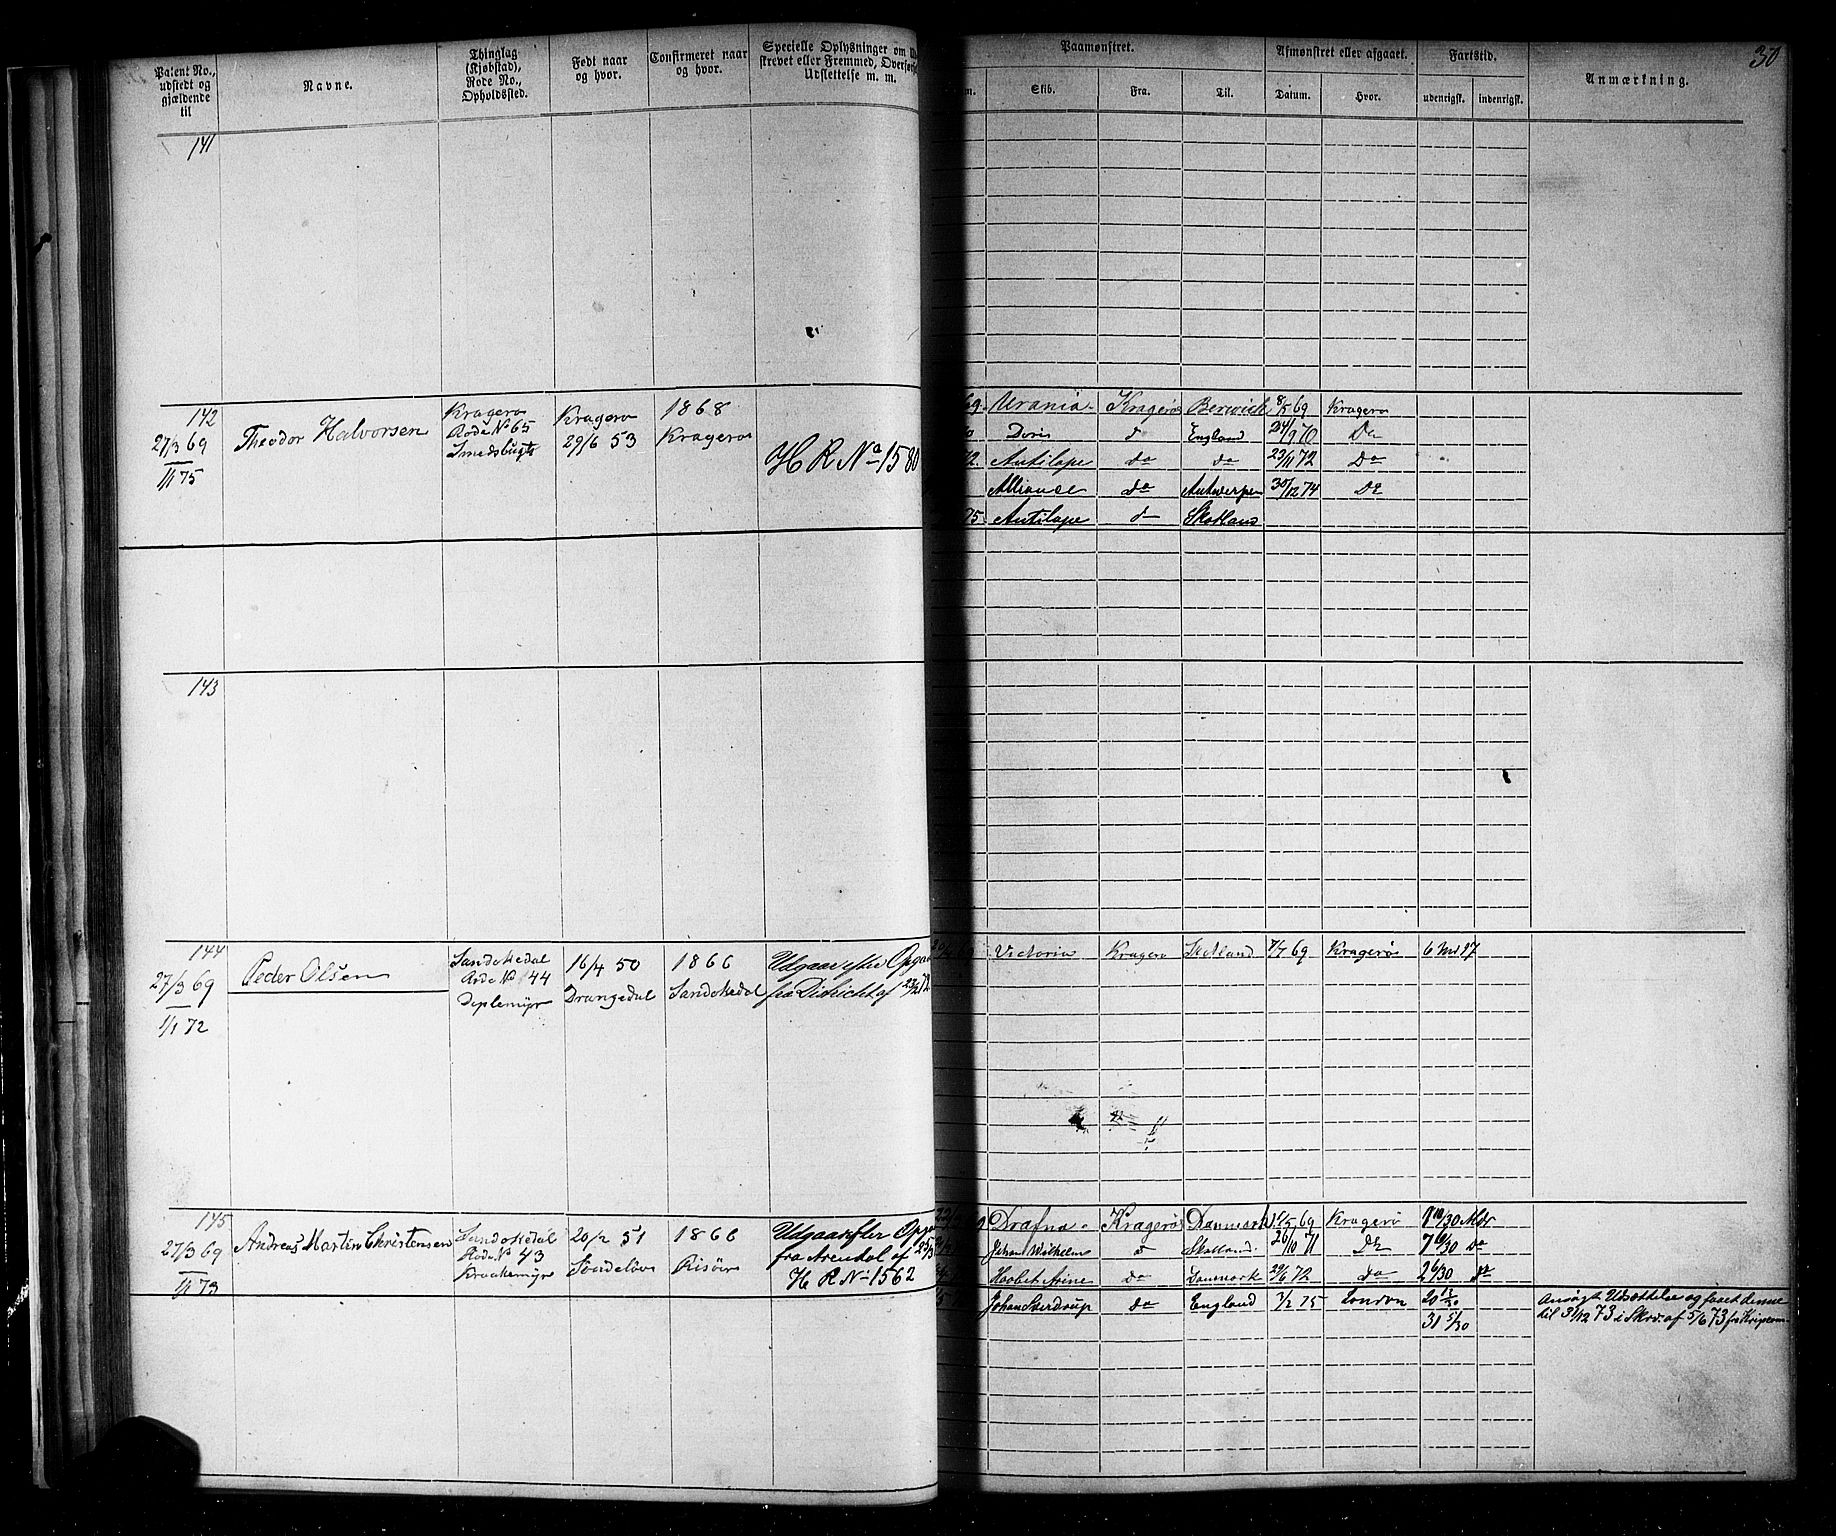 30
Patent No., udstedt og gjældende til
Navne.
Thinglag (Kjøbstad), Rode No., Opholdssted.
Født naar og hvor.
Confirmeret naar og hvor.
Specielle Oplysninger om
strevet eller Fremmed, Overført
Udslettelse m. m.
Paamønstret.
Skib.
Fra.
Til.
Afmønstret eller afgaaet.
Datum.
Hvor.
Fartstid.
udenrigsk.
indenrigsk.
Anmærkning.
141
142
27/3 69
1/1 75
Theodor Halvorsen
Kragerø
Rode No 65
Smedsbugt
Kragerø
29/6 53
1868
Kragerø
H R No 1580
69. Urania Kragerø Berwick 8/5 69 Kragerø
70 Doris do England 24/9 70 Do
72. Antilope do do 23/11 72 Do
Alliance do Antwerpen 30/12 74 Do
75 Antilope do Skotland
143
144
27/3 69
1/1 72
Peder Olsen
Sandøkedal
Rode No 44
Deplemyr
16/4 50
Drangedal
1866
Sandøkedal
Udgaar efter Opgav
fra Districtet af
Victoria Kragerø Skotland 7/7 69 Kragerø 6 Md 27
145
27/3 69
1/1 73
Andreas Martin Christensen
Sandøkedal
Rode No 43
Kraakemyr
20/2 51
Søndeløv
1866
Risøer
Udgaar efter Opgav
fra Arendal af
H R No 1562
Drafna Kragerø Danmark 16/5 69 Kragerø 1 10/30 Mdr
Johan Wilhelm do Skotland. 26/10 71 Do 7 6/30 Do
Haabet Arine do Danmark 29/6 72 do 2 6/30 do
Johan Sverdrup do England 7/2 75 London 20 13/30
31 5/30
Ansøgt Udsættelse og faaet denne
til 31/12 73 i Skr. af 5/6 73 fra